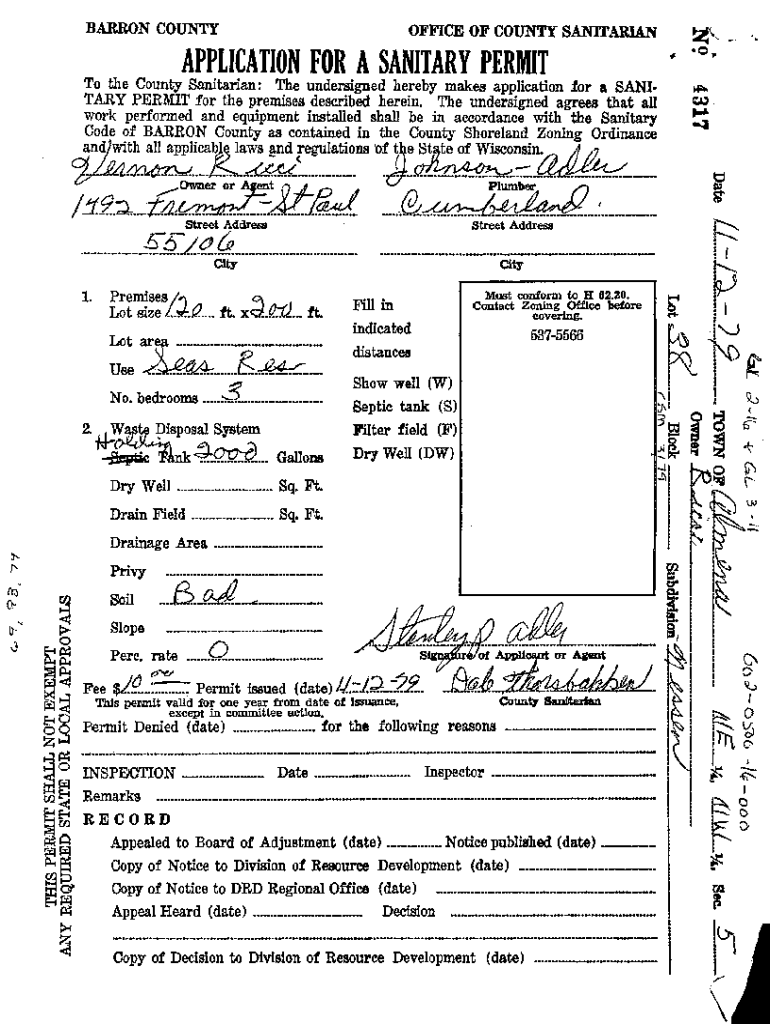 BARRON COUNTY OFFICE OF COUNTY SANITARIAN
APPLICATION FOR A SANITARY PERMIT
To the County Sanitarian: The undersigned hereby makes application for a SANI-
TARY PERMIT for the premises described herein. The undersigned agrees that all
work performed and equipment installed shall be in accordance with the Sanitary
Code of BARRON County as contained in the County Shoreland Zoning Ordinance
and/with all applicable laws and regulations of the State of Wisconsin.
Vernon Ricci Johnson-Adler
Owner or Agent Plumber
1492 Fremont-St Paul Cumberland.
Street Address Street Address
55106
City City
1. Premises
Lot size 120 ft. x 200 ft.
Lot area
Use Seas Res
No. bedrooms 3
Fill in
indicated
distances
Show well (W)
Septic tank (S)
Filter field (F)
Dry Well (DW)
Must conform to H 62.20.
Contact Zoning Office before
covering.
537-5566
2. Waste Disposal System
Holding
Septic Tank 2000 Gallons
Dry Well Sq. Ft.
Drain Field Sq. Ft.
Drainage Area
Privy
Soil Bad
Slope
Perc. rate 0
Stanley P Adler
Signature of Applicant or Agent
Fee $10 00 Permit issued (date) 11-12-79
County Sanitarian
This permit valid for one year from date of issuance,
except in committee action.
Permit Denied (date) for the following reasons
INSPECTION Date Inspector
Remarks
RECORD
Appealed to Board of Adjustment (date) Notice published (date)
Copy of Notice to Division of Resource Development (date)
Copy of Notice to DRD Regional Office (date)
Appeal Heard (date) Decision
Copy of Decision to Division of Resource Development (date)
THIS PERMIT SHALL NOT EXEMPT
ANY REQUIRED STATE OR LOCAL APPROVALS
69, 93, 79
No. 4317
Date 11-12-79 TOWN OF Almena NE ¼, NW ¼, Sec. 5
Owner Ricci
Lot 38 Block Subdivision Nessen
CSM 31 79
GL 2-16 + GL 3-11
002-0500-16-000